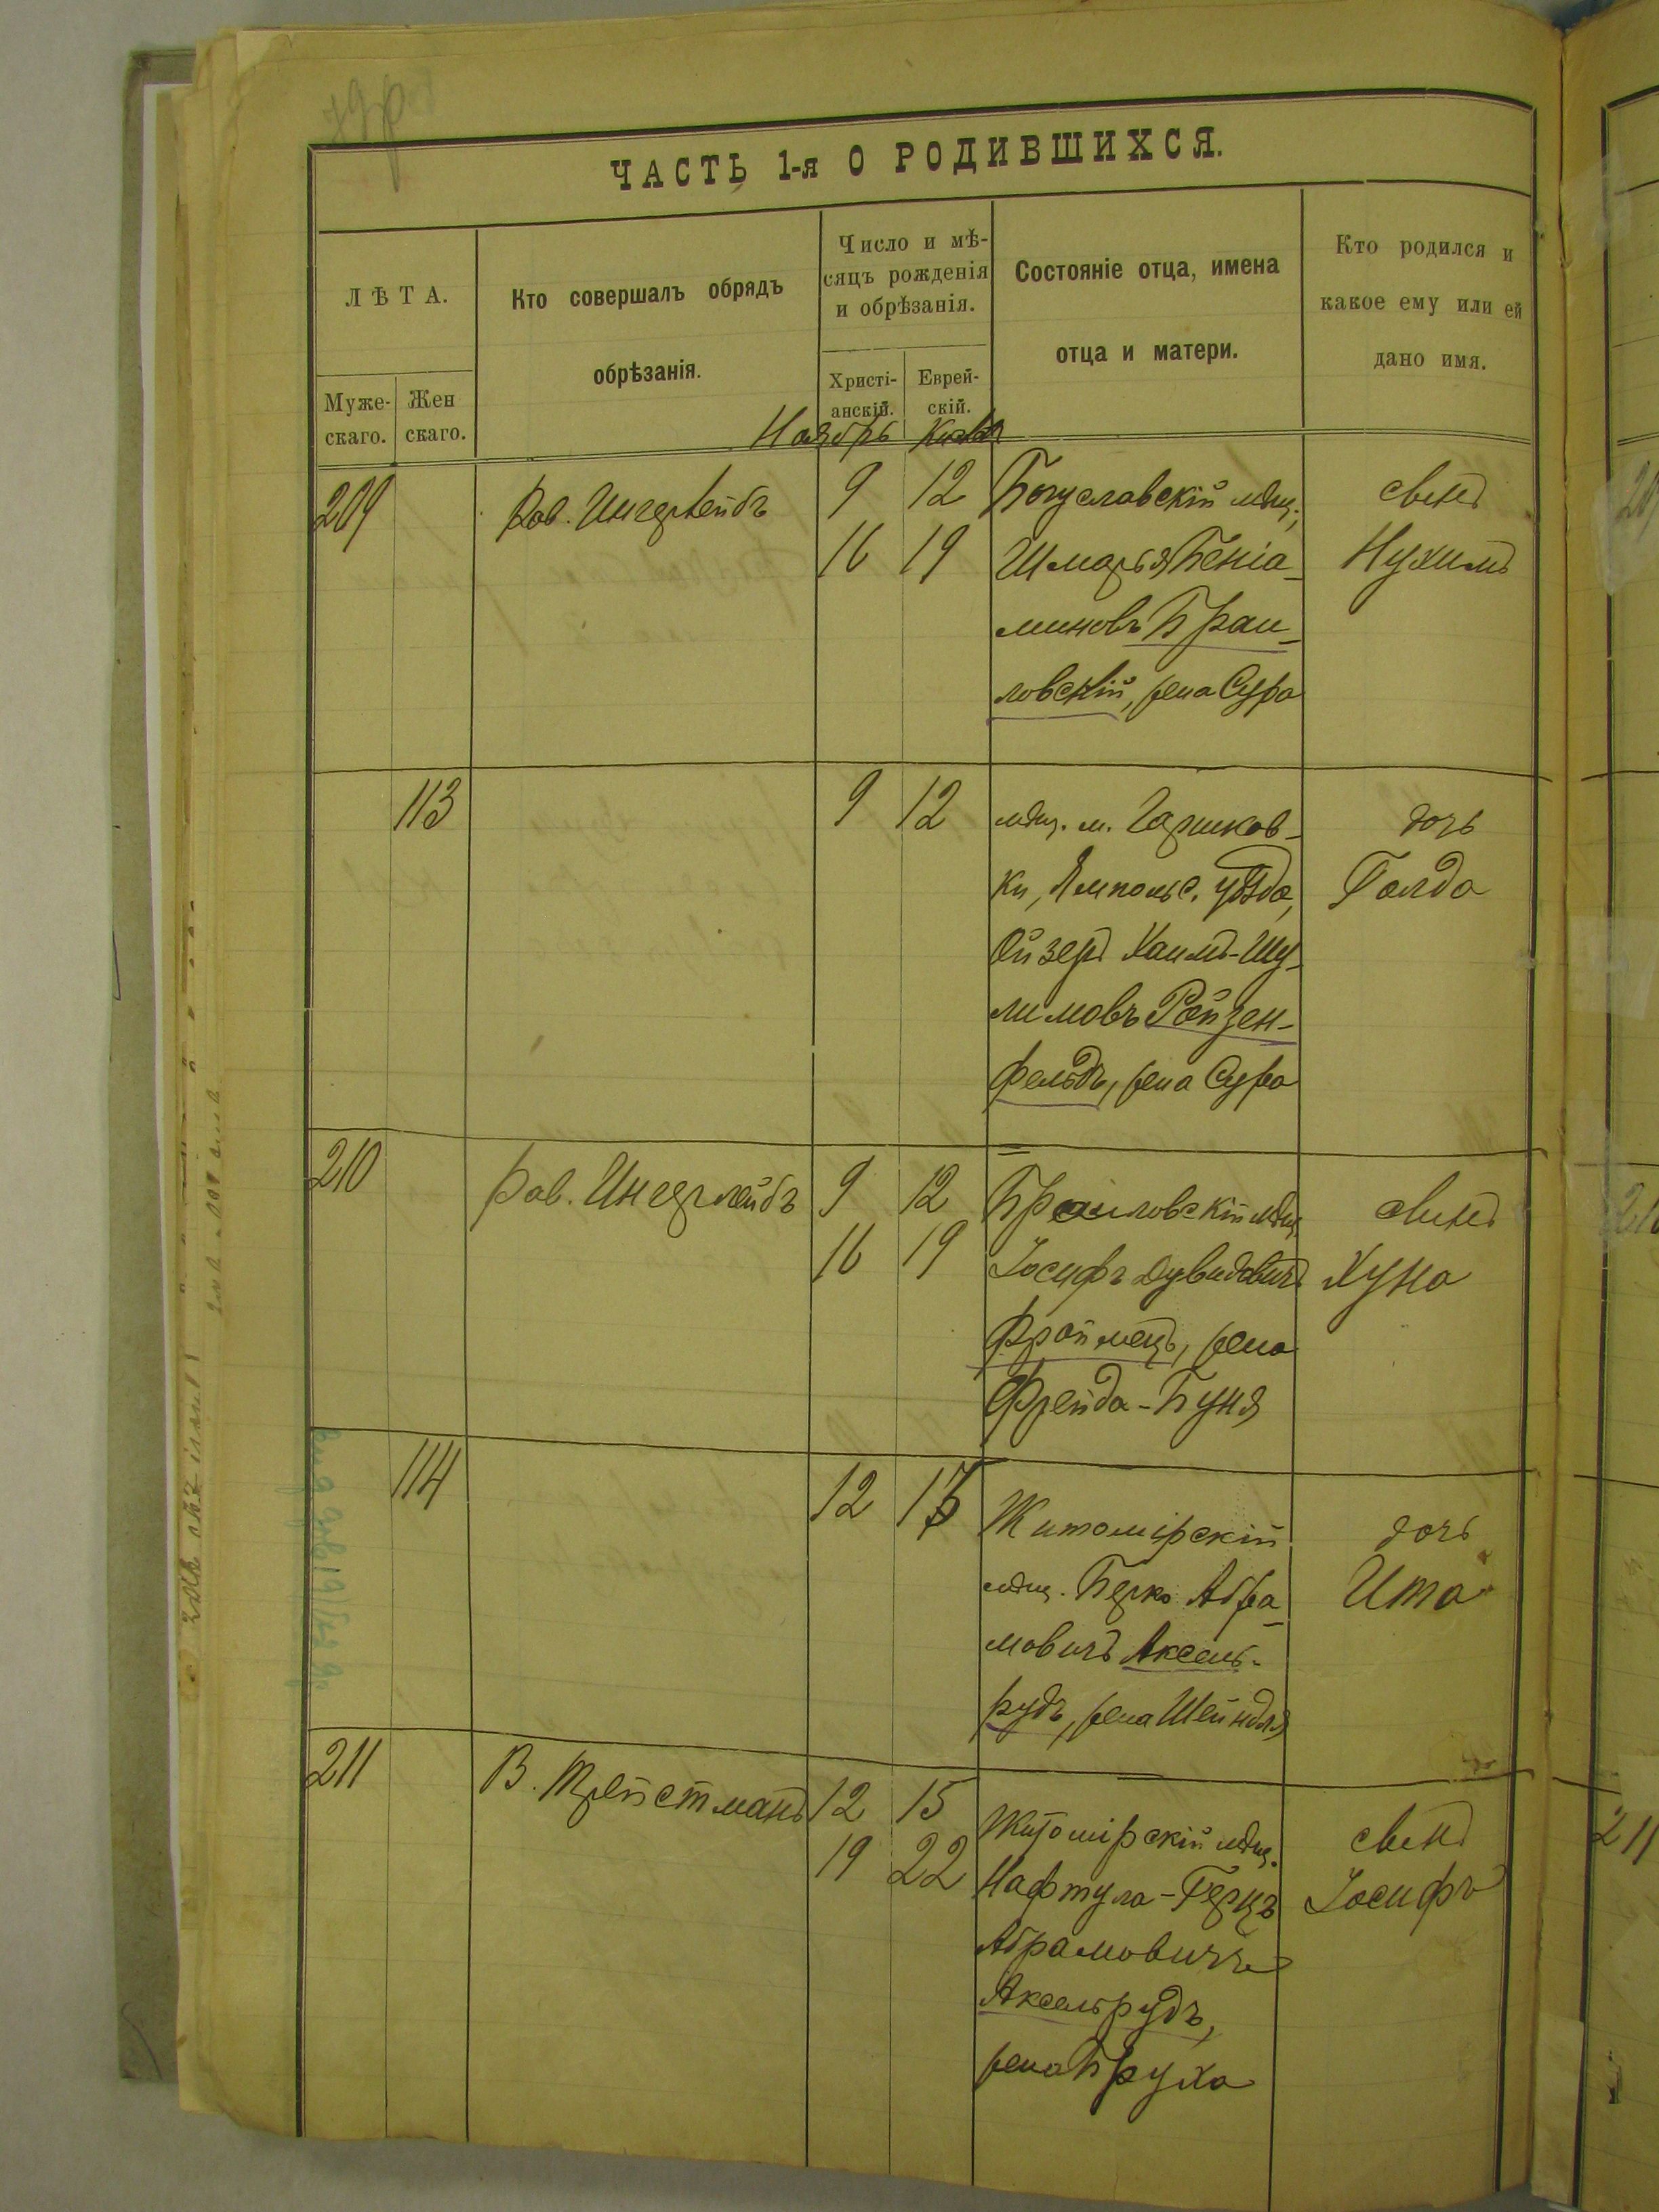 ЧАСТЬ 1-я О РОДИВШИХСЯ.
ЛѢТА.
Муже-
скаго.
Жен
скаго.
Кто совершалъ обрядъ
обрѣзанія.
Число и мѣ-
сяцъ рожденія
и обрѣзанія.
Христі-
анскій.
Еврей-
скій.
Состояніе отца, имена
отца и матери.
Кто родился и
какое ему или ей
дано имя.
Ноябрь
209
Рав. Ингерлейбъ
9 12
16 19
Богуславскій мѣщ.,
Шмарья Беніа-
миновъ Браи-
ловскій, жена Сура
сынъ
Нухимъ
113
9 12
мѣщ. м.
ки, Ямпольс. уѣзда,
Ойзеръ Хаимъ-Шу-
лимовъ Ройзен-
фельдъ, жена Сура
дочь
Голда
210
Рав. Ингерлейбъ
9 12
16 19
Браиловскій мѣщ.
Іосифъ Дувидовичъ
жена
Фрейда-Буня
сынъ
Хуна
114
12 15
Житомірскій
мѣщ. Берко Абра-
мовичъ Аксель-
рудъ, жена Шейндля
дочь
Ита
211
В. Трейстманъ
12 15
19 22
Житомірскій мѣщ.
Нафтула-Герцъ
Абрамовичъ
Аксельрудъ,
жена Бруха
сынъ
Іосифъ
211